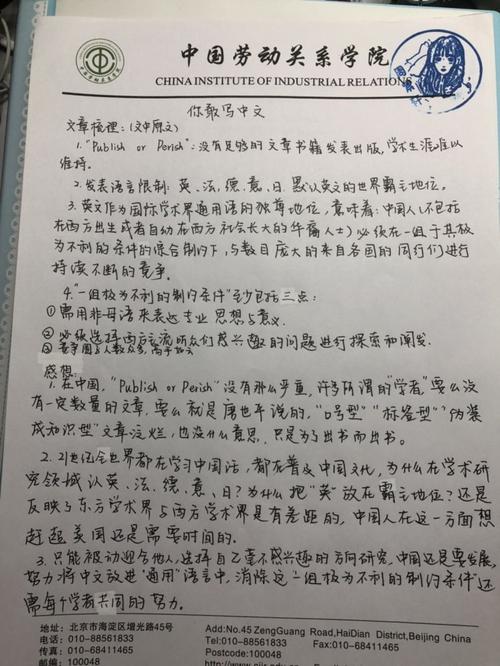 中国劳动关系学院
CHINA INSTITUTE OF INDUSTRIAL RELATIONS
你敢写中文
文章梳理:(文中原文)
1."Publish or Perish":没有足够的文章书籍发表出版,学术生涯难以
维持。
2.发表语言限制:英、法、德、意、日.默认英文的世界霸主地位。
3.英文作为国际学术界通用语的独尊地位,意味着:中国人(不包括
在西方出生或者自幼在西方社会长大的华裔人士)必须在一组于其极
为不利的条件的综合制约下,与数目庞大的来自各国的同行们进行
持续不断的竞争。
4."一组极为不利的制约条件"至少包括三点:
①需用非母语来表达专业思想与意义.
②必须选择西方主流听众们感兴趣的问题进行探索和阐发.
③竞争圈子人数众多,高手如云
感想:
1.在中国,"Publish or Perish"没有那么严重,许多所谓的"学者"要么没
有一定数量的文章.要么就是唐也平说的,"口号型""标签型""伪装
成知识型"文章泛烂,也没什么意思.只是为了出书而出书。
2.21世纪全世界都在学习中国话,都在普及中国文化,为什么在学术研
究领域认英、法、德、意、日?为什么把"英"放在霸主地位?还是
反映了东方学术界与西方学术界是有差距的,中国人在这一方面想
赶超美国还是需要时间的.
3.只能被动迎合他人,选择自己毫不感兴趣的方向研究,中国还是要发展,
努力将中文放进"通用"语言中,消除这"一组极为不利的制约条件"还
需每个学者共同的努力。
地址:北京市海淀区增光路45号 Add:No.45 ZengGuang Road,HaiDian District,Beijing China
电话:010-88561833 Tel:010-88561833
传真:010-68411465 Fax:010-68411465
邮编:100048 Postcode:100048